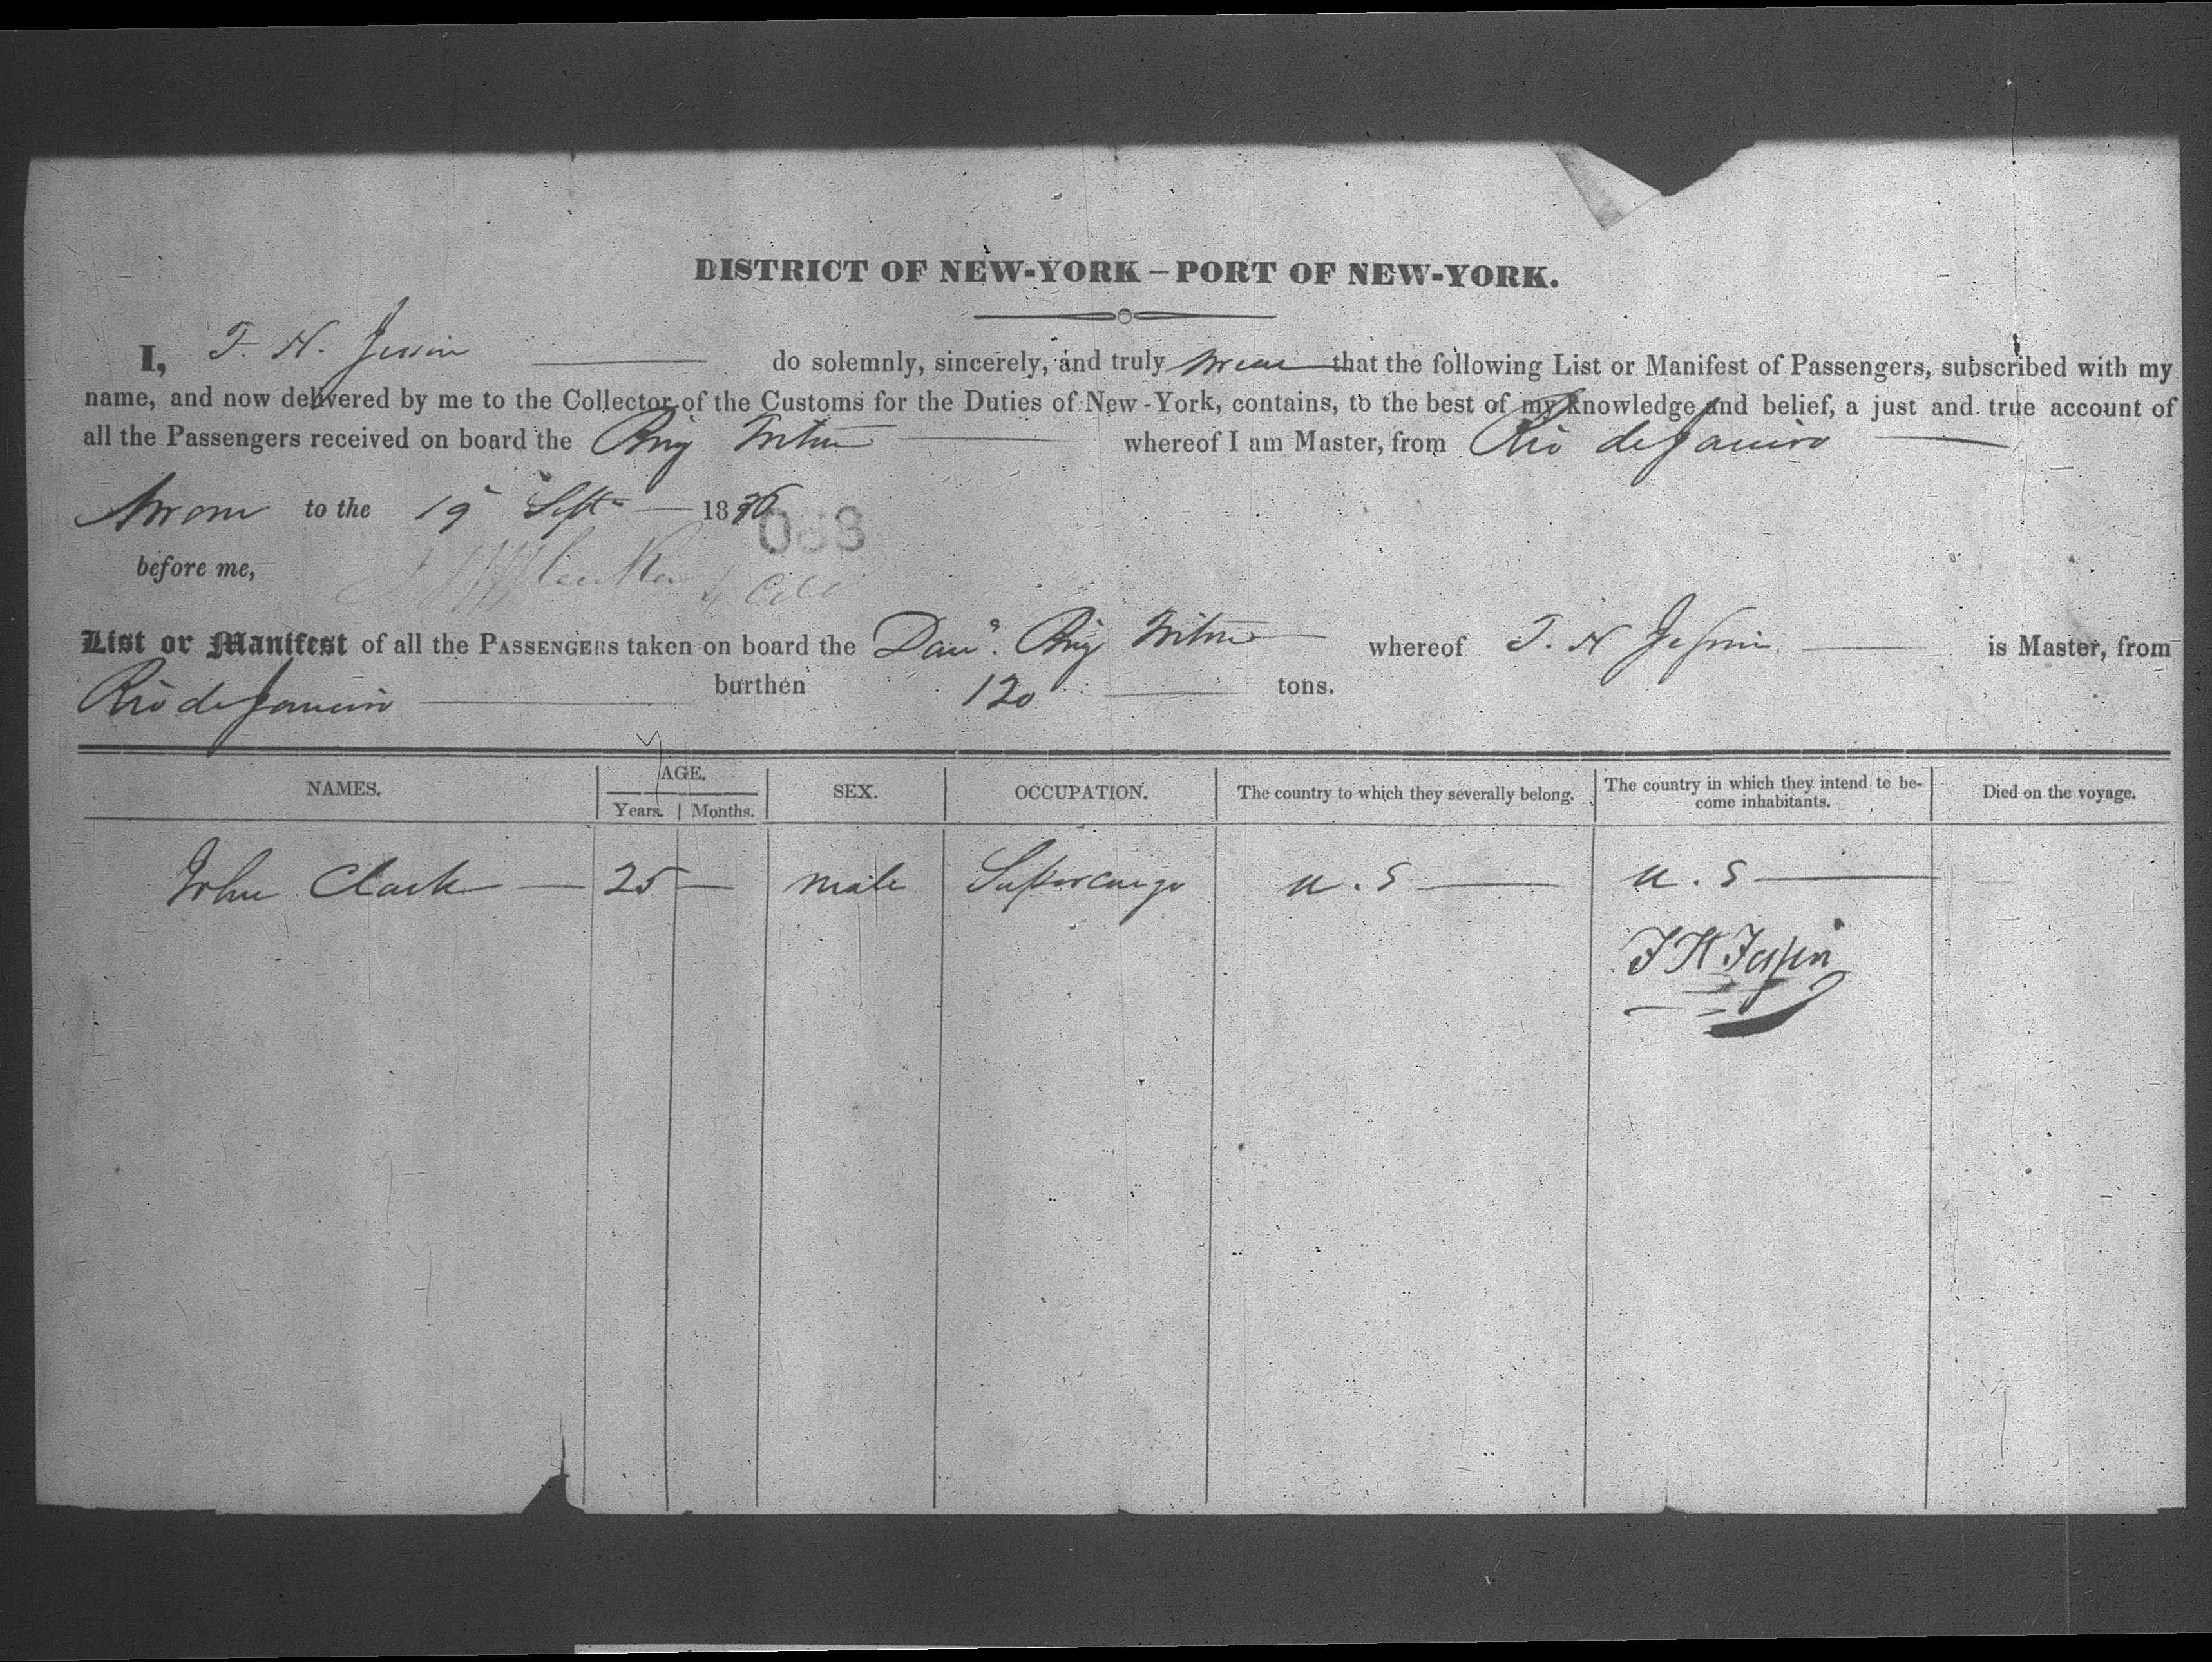 DISTRICT OF NEW-YORK – PORT OF NEW-YORK.
I, T. H. Jessin do solemnly, sincerely, and truly swear that the following List or Manifest of Passengers, subscribed with my
name, and now delivered by me to the Collector of the Customs for the Duties of New-York, contains, to the best of my knowledge and belief, a just and true account of
all the Passengers received on board the Brig whereof I am Master, from Rio de Janeiro
Sworn to the 19 Sept 1836
083
before me,
List or Manifest of all the PASSENGERS taken on board the Dan. Brig whereof T. H Jessin is Master, from
Rio de Janeiro burthen 120 tons.
NAMES. AGE. SEX. OCCUPATION. The country to which they severally belong. The country in which they intend te be-
come inhabitants. Died on the voyage.
Years. Months.
John Clark — 25 — male Supercargo U. S — U. S —
T H Jessin